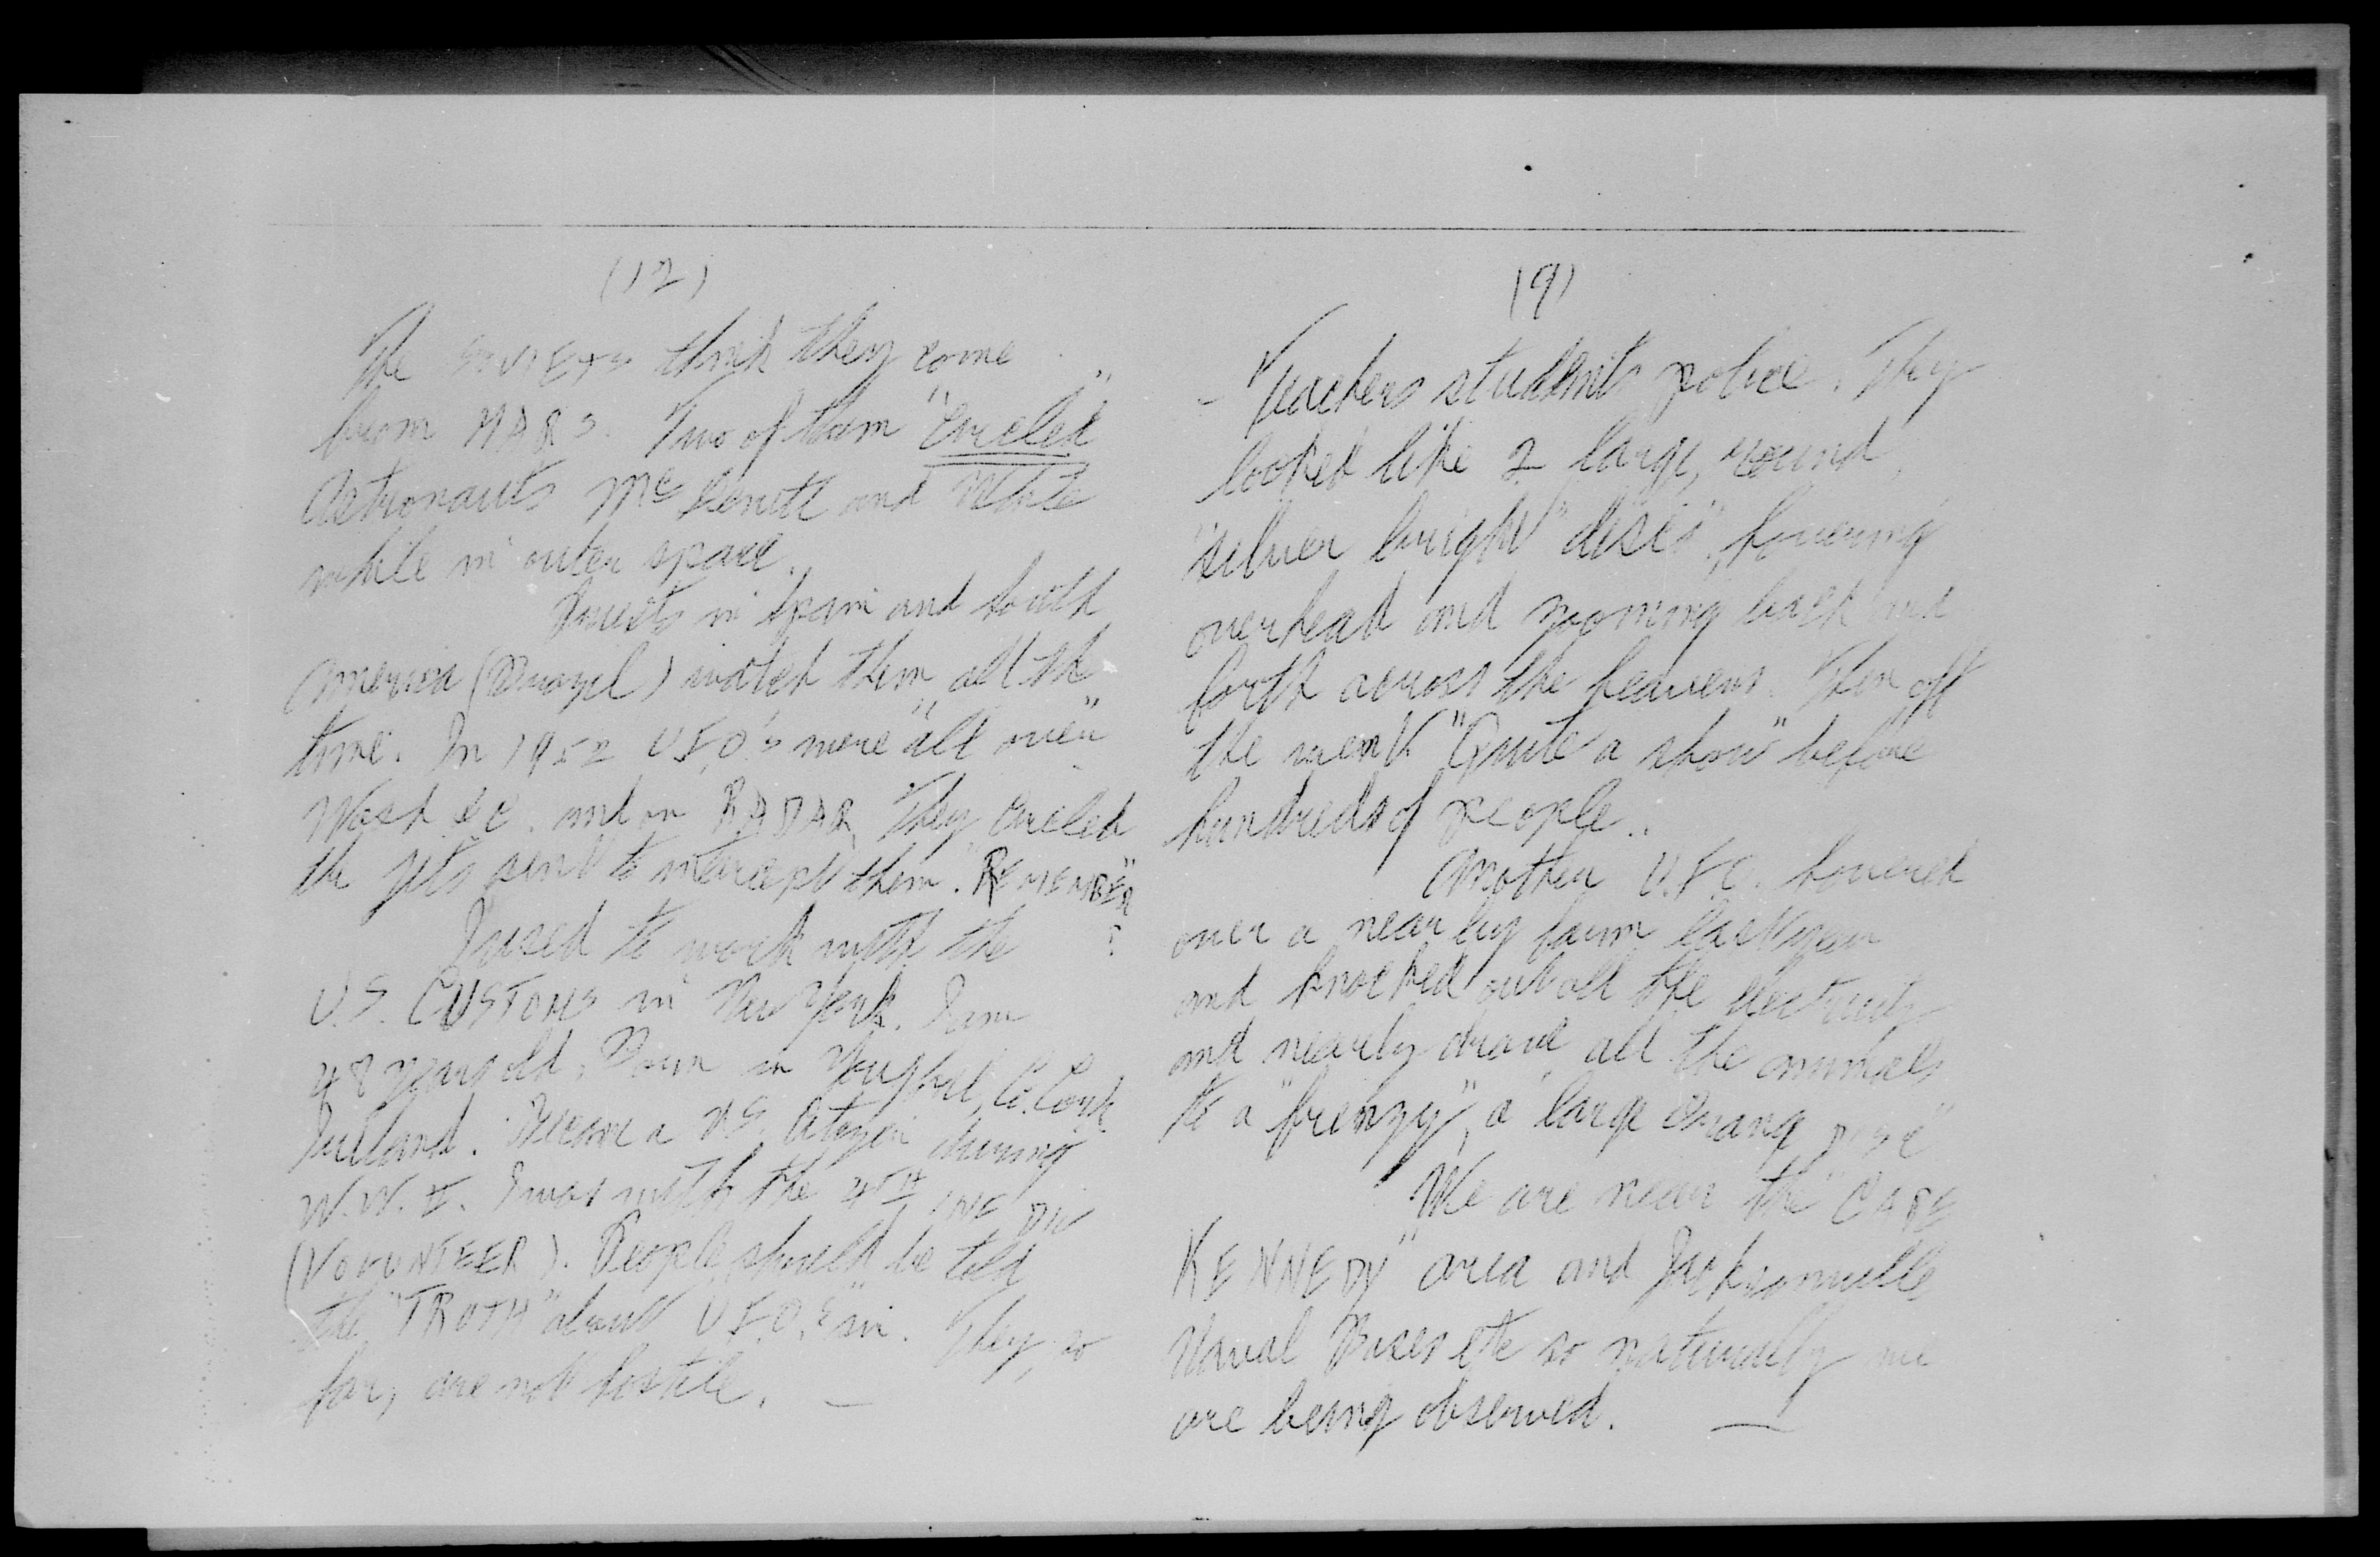 (12)
The SOVIETS think they come
from MARS. Two of them "Circled"
Astronauts McDevitt and White
while in outer space.
Priests in Spain and South
America (Brazil) watch them all the
time. In 1952 U.F.O.'s were "all over"
Wash D.C. and on RADAR. They circled
the jets sent to intercept them. "REMEMBER"
?
I used to work with the
U.S. CUSTOMS in New York. I am
48 years old. Born in Youghal, Co. Cork
Ireland. Became a U.S. Citizen during
W.W. II. I was with the 4TH INF DIV
(VOLUNTEER). People should be told
the "TRUTH" about U.F.O.'s sir. They, so
far, are not hostile. —
(9)
- Teachers students police. They
looked like 2 large, round,
"silver bright" discs", hovering
overhead and zooming back and
forth across the heavens. Then off
the went "Quite a show" before
hundreds of people..
Another U.F.O. hovered
over a near by farm last year
and knocked out all the electricity
and nearly drove all the animals
to a "frenzy", a large Orang DISC"
We are near the "CAPE
KENNEDY" area and Jacksonville
Naval Bases etc so naturally we
are being observed. —